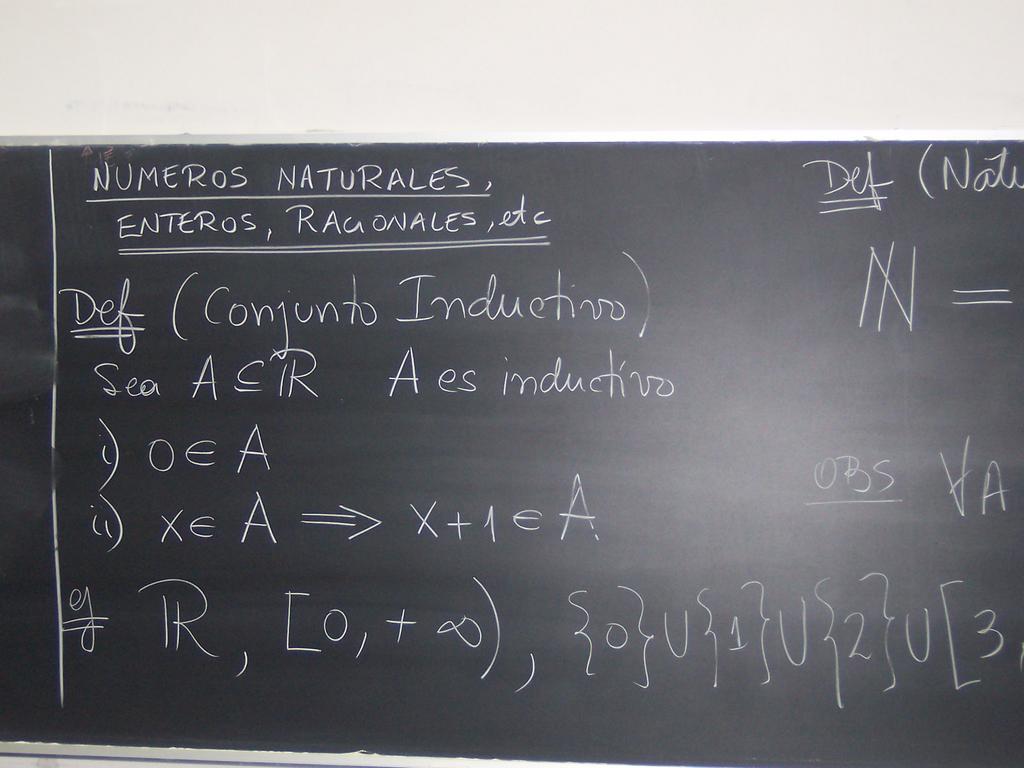 NUMEROS NATURALES,
ENTEROS, RACIONALES, etc
Def (Conjunto Inductivo)
Sea A ⊆ ℝ A es inductivo
i) 0 ∈ A
ii) x ∈ A ⟹ x + 1 ∈ A.
ej ℝ, [0, + ∞), {0} ∪ {1} ∪ {2} ∪ [3,
Def (Natu
ℕ =
OBS ∀A